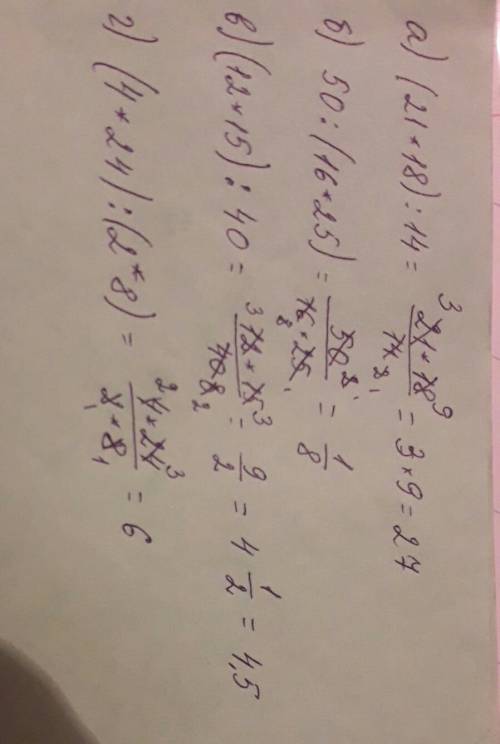 а) (21*18):14 = 21*18/14 = 3*9 = 27
б) 50:(16*25) = 50/16*25 = 1/8
в) (12*15):40 = 12*15/40 = 9/2 = 4 1/2 = 4,5
г) (4*24):(2*8) = 4*24/2*8 = 6